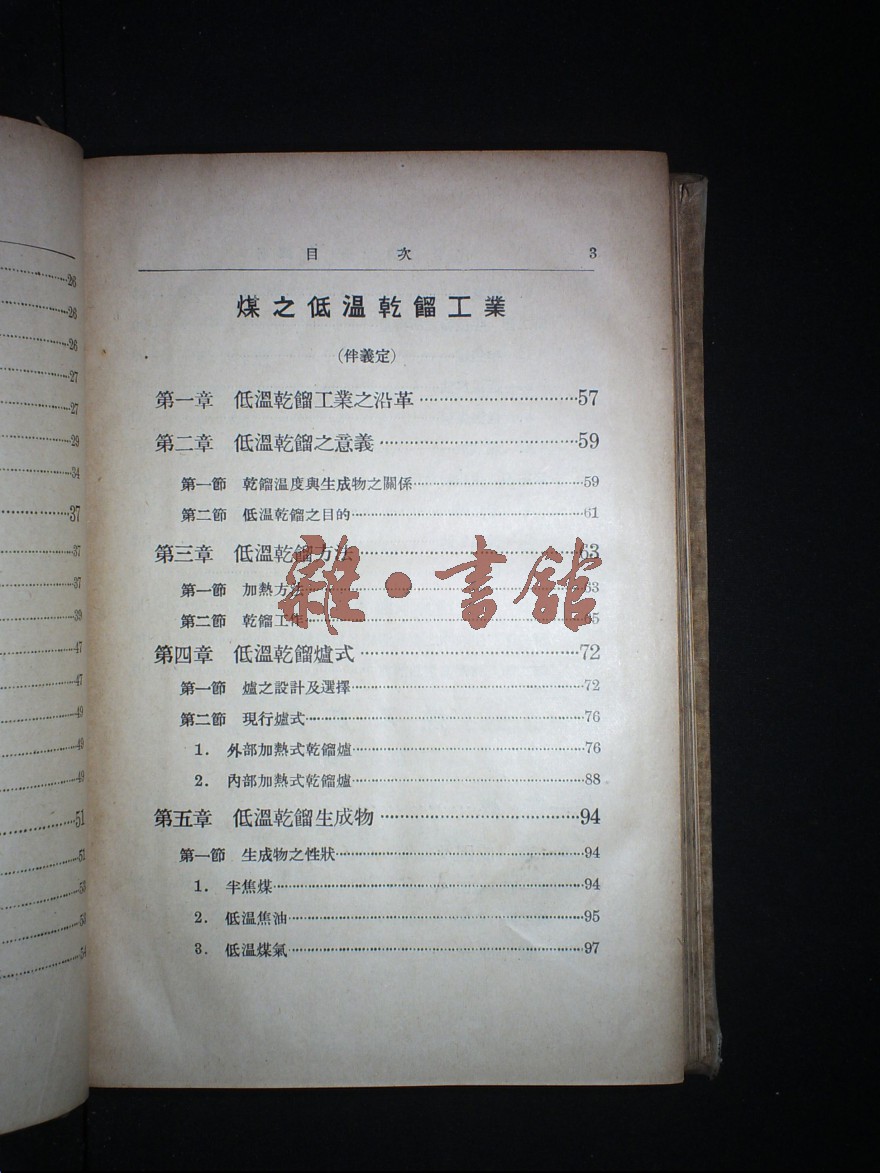 26
26
26
27
27
29
34
37
37
37
39
47
47
49
49
49
51
51
53
53
54
目 次 3
煤之低溫乾餾工業
(伴義定)
第一章 低溫乾餾工業之沿革 57
第二章 低溫乾餾之意義 59
第一節 乾餾溫度與生成物之關係 59
第二節 低溫乾餾之目的 61
第三章 低溫乾餾方法 63
第一節 加熱方法 63
第二節 乾餾工作 65
雜·書館
第四章 低溫乾餾爐式 72
第一節 爐之設計及選擇 72
第二節 現行爐式 76
1. 外部加熱式乾餾爐 76
2. 內部加熱式乾餾爐 88
第五章 低溫乾餾生成物 94
第一節 生成物之性狀 94
1. 半焦煤 94
2. 低溫焦油 95
3. 低溫煤氣 97